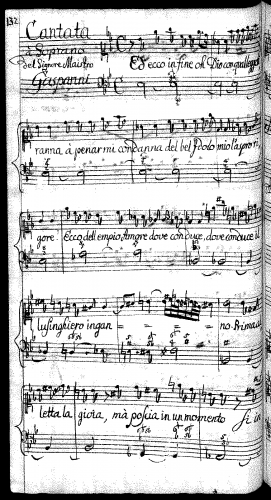 132
Cantata
à Soprano
del Signore Maestro
Gasparini
E ecco in fine oh Dio con qual legge ti
ranna, à penar mi condanna del bel Idolo mio l'aspro ri
gore. Ecco dell'empio Amore dove conduce, dove conduce il
lusinghiero ingan = = = = no. Prima al
letta la gioia, mà poscia in un momento si in